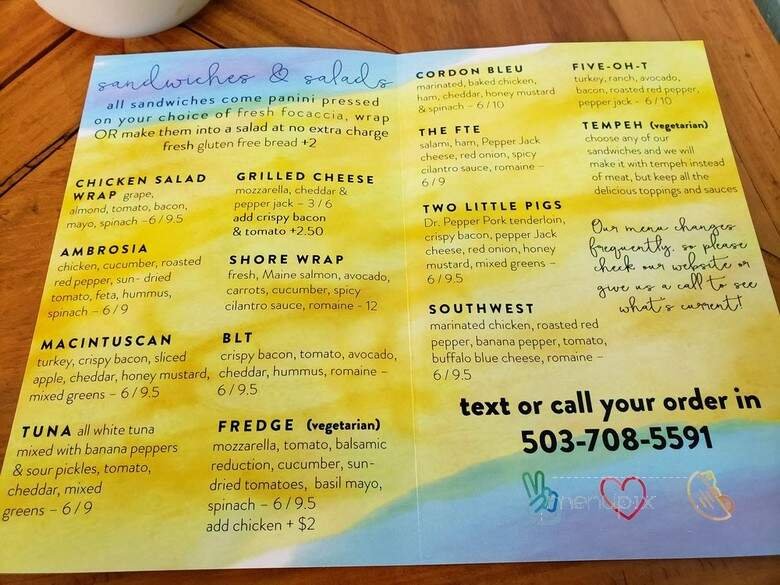 sandwiches & salads
all sandwiches come panini pressed
on your choice of fresh focaccia, wrap
OR make them into a salad at no extra charge
fresh gluten free bread +2
CHICKEN SALAD
WRAP grape,
almond, tomato, bacon,
mayo, spinach – 6 / 9.5
AMBROSIA
chicken, cucumber, roasted
red pepper, sun- dried
tomato, feta, hummus,
spinach – 6 / 9
MACINTUSCAN
turkey, crispy bacon, sliced
apple, cheddar, honey mustard,
mixed greens – 6 / 9.5
TUNA all white tuna
mixed with banana peppers
& sour pickles, tomato,
cheddar, mixed
greens – 6 / 9
GRILLED CHEESE
mozzarella, cheddar &
pepper jack – 3 / 6
add crispy bacon
& tomato +2.50
SHORE WRAP
fresh, Maine salmon, avocado,
carrots, cucumber, spicy
cilantro sauce, romaine - 12
BLT
crispy bacon, tomato, avocado,
cheddar, hummus, romaine –
6 / 9.5
FREDGE (vegetarian)
mozzarella, tomato, balsamic
reduction, cucumber, sun-
dried tomatoes, basil mayo,
spinach – 6 / 9.5
add chicken + $2
CORDON BLEU
marinated, baked chicken,
ham, cheddar, honey mustard
& spinach – 6 / 10
THE FTE
salami, ham, Pepper Jack
cheese, red onion, spicy
cilantro sauce, romaine –
6 / 9
TWO LITTLE PIGS
Dr. Pepper Pork tenderloin,
crispy bacon, pepper Jack
cheese, red onion, honey
mustard, mixed greens –
6 / 9.5
SOUTHWEST
marinated chicken, roasted red
pepper, banana pepper, tomato,
buffalo blue cheese, romaine –
6 / 9.5
FIVE-OH-T
turkey, ranch, avocado,
bacon, roasted red pepper,
pepper jack – 6 / 10
TEMPEH (vegetarian)
choose any of our
sandwiches and we will
make it with tempeh instead
of meat, but keep all the
delicious toppings and sauces
Our menu changes
frequently, so please
check our website or
give us a call to see
what's current!
text or call your order in
503-708-5591
menupix